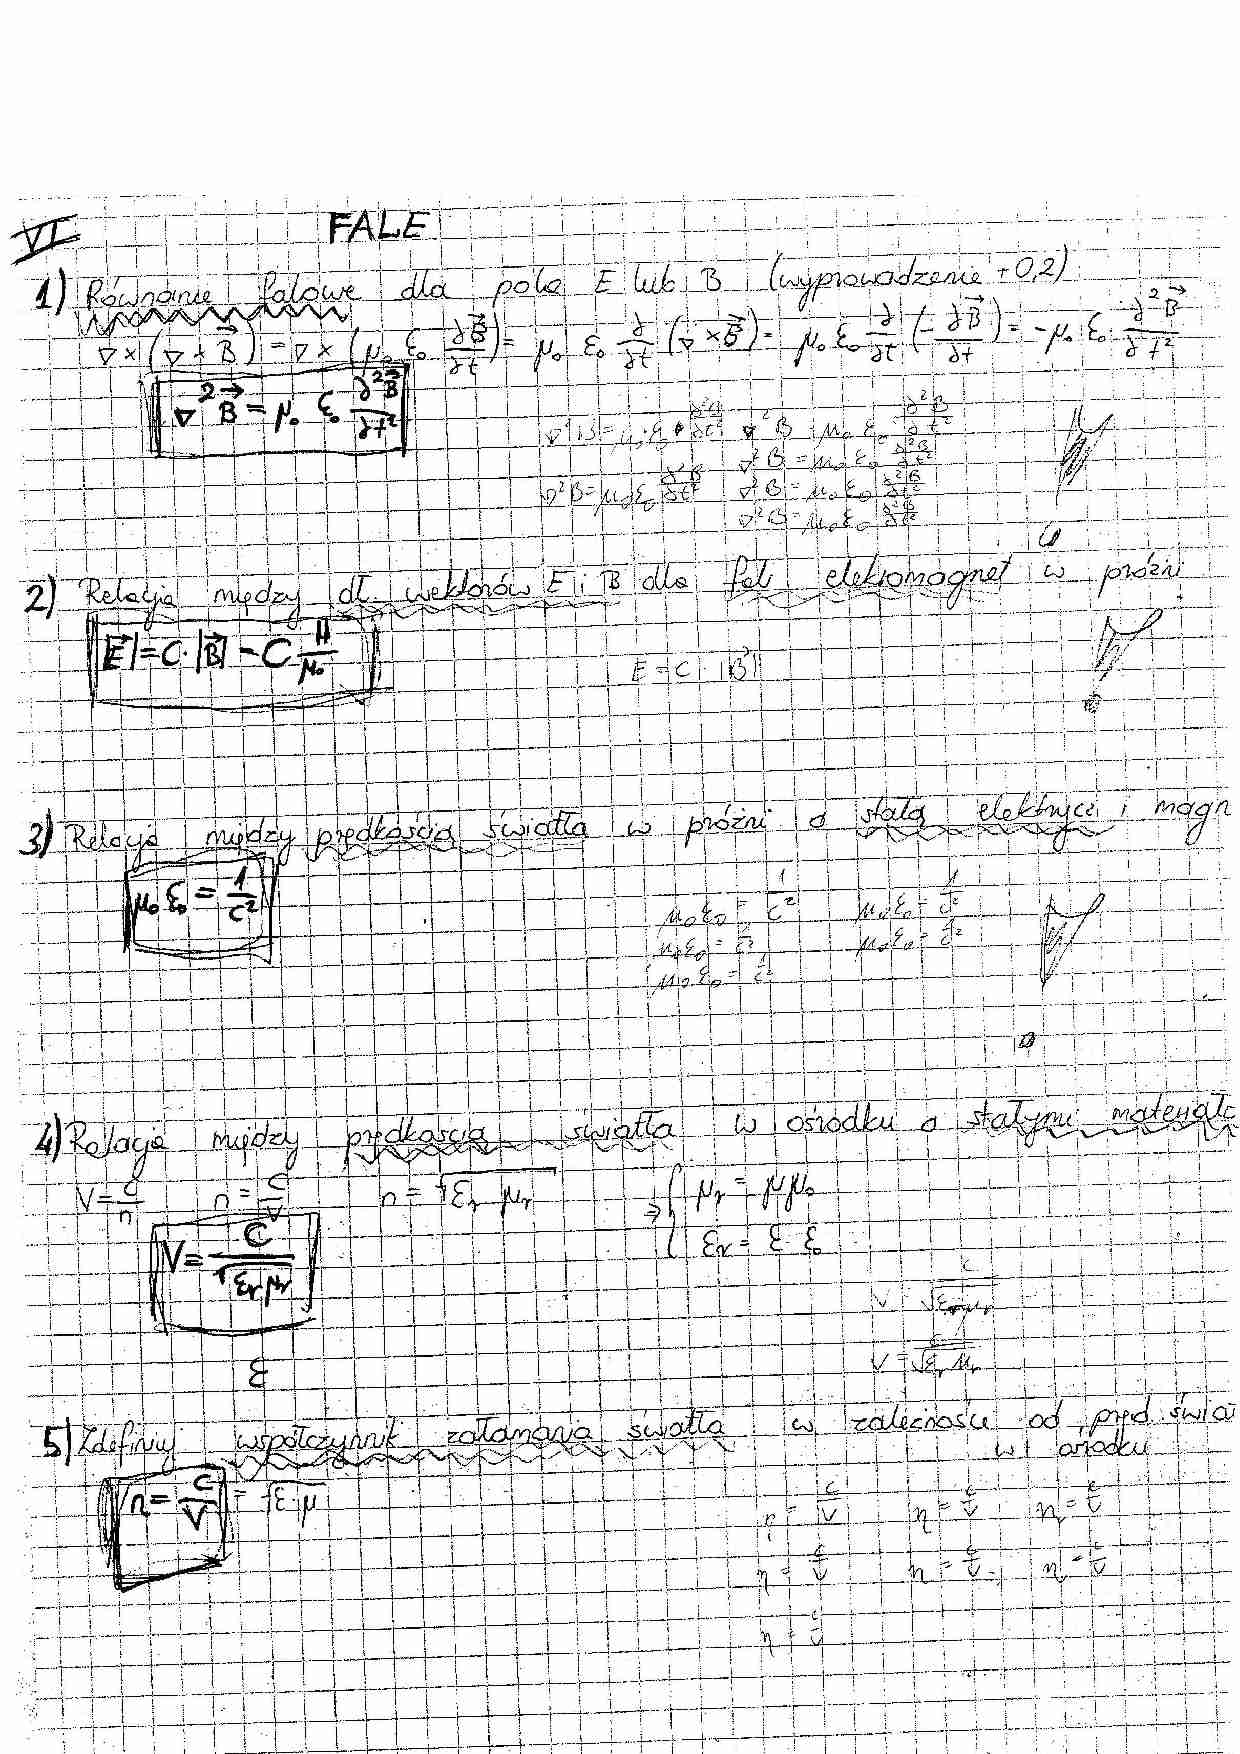 VI FALE
1) Równanie falowe dla pola E lub B (wyprowadzenie +0,2)
∇×(∇×B⃗) = ∇×(μ₀ ε₀ ∂B⃗/∂t) = μ₀ ε₀ ∂/∂t (∇×B⃗) = μ₀ ε₀ ∂/∂t (-∂B⃗/∂t) = -μ₀ ε₀ ∂²B⃗/∂t²
∇²B⃗ = μ₀ ε₀ ∂²B⃗/∂t²
∇²B = μ₀ ε₀ ∂²B/∂t² ∇²B = μ₀ ε₀ ∂²B/∂t²
∇²B = μ₀ ε₀ ∂²B/∂t²
∇²B = μ₀ ε₀ ∂²B/∂t² ∇²B = μ₀ ε₀ ∂²B/∂t²
∇²B = μ₀ ε₀ ∂²B/∂t²
2) Relacja między dł. wektorów E i B dla fal elektromagnet w próżni
|E⃗| = C·|B⃗| - C H/μ₀
E = C |B⃗|
3) Relacja między prędkością światła w próżni a stałą elektrycz i magn
μ₀ ε₀ = 1/c²
μ₀ ε₀ = 1/c² μ₀ ε₀ = 1/c²
μ₀ ε₀ = 1/c² μ₀ ε₀ = 1/c²
μ₀ ε₀ = 1/c²
4) Relacja między prędkością światła w ośrodku a stałymi
V = c/n n = c/V n = √εr μr ⇒ { μr = μμ₀
εr = ε ε₀
V = C/√εr μr
V √εr μr
V = c/√εr μr
ε
5) Zdefiniuj współczynnik załamania światła w zależności od pręd świat
w ośrodku
n = C/V = √ε·μ
n = c/V n = c/V n = c/V
n = c/V n = c/V n = c/V
n = c/V